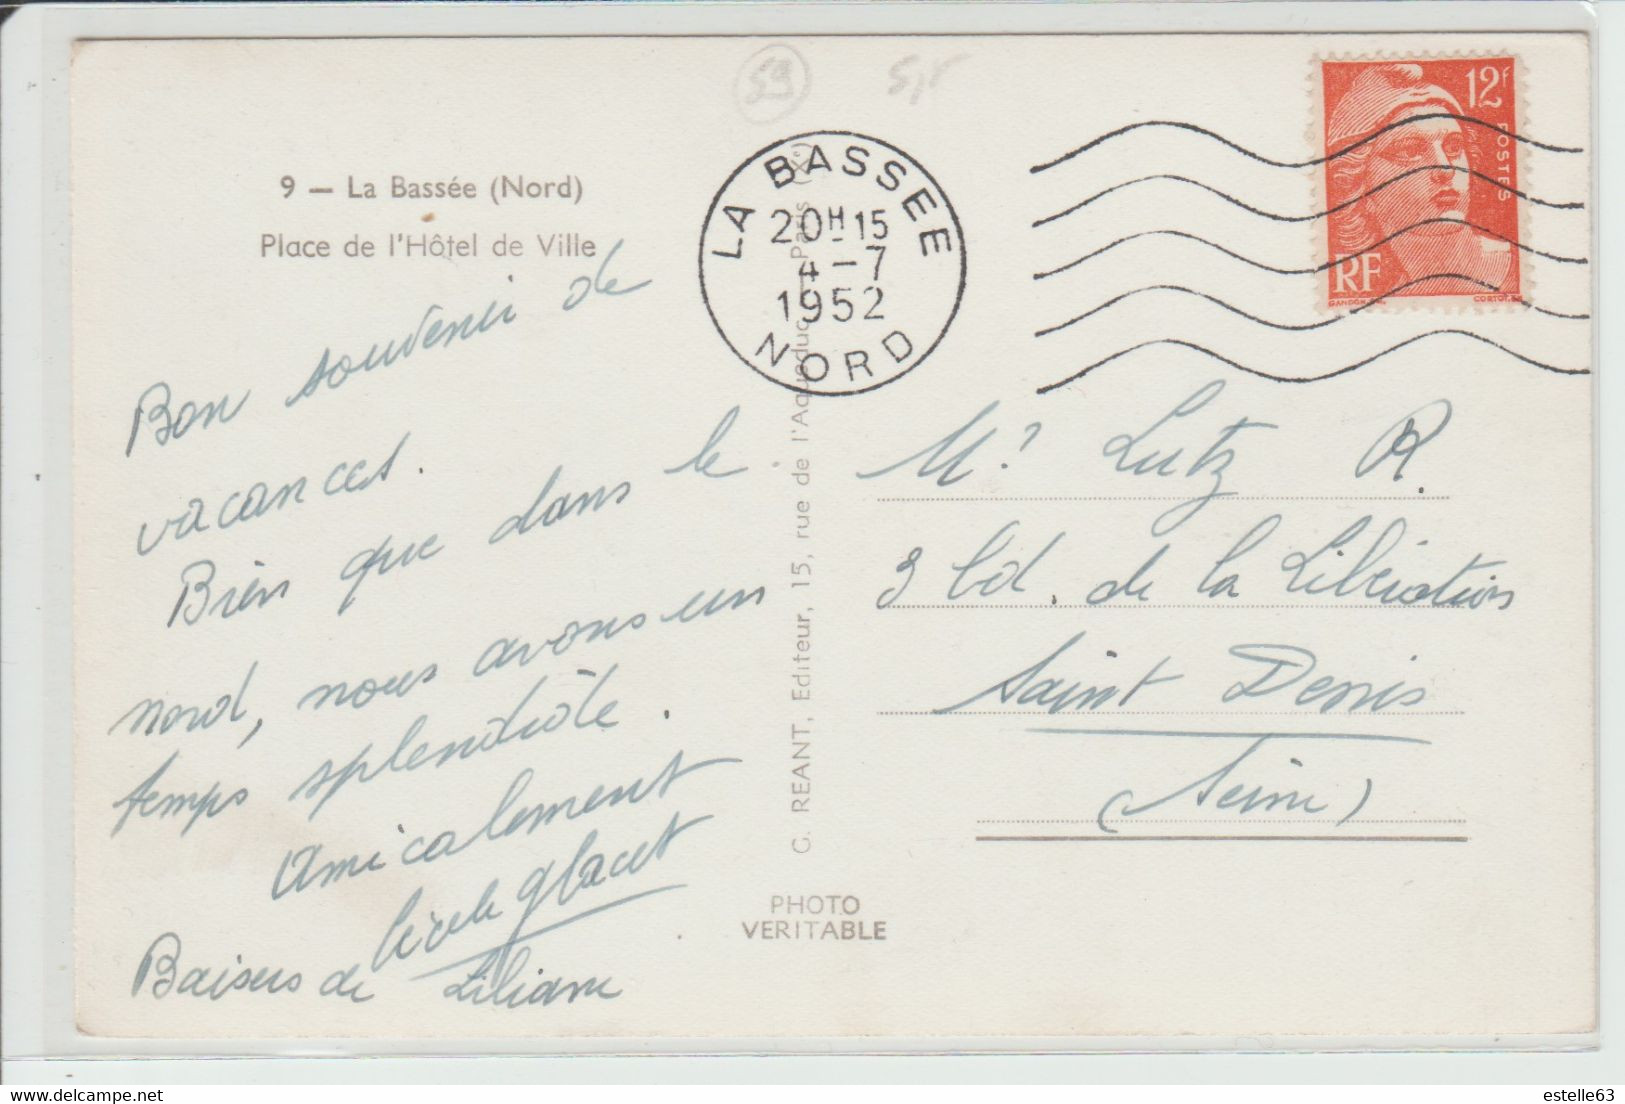 59
9 — La Bassée (Nord)
Place de l'Hôtel de Ville
LA BASSEE
20H-15
4-7
1952
NORD
12F
POSTES
RF
GANDON
CORTOT
Bon souvenir de
vacances.
Bien que dans le
nord, nous avons un
temps splendide.
Amicalement
glacet
Baisers de Liliane
G. REANT, Editeur, 15, rue de l'Aqueduc, Paris (Xe)
PHOTO
VERITABLE
Mr Lutz R.
3 Bd. de la Libération
Saint Denis
(Seine)
estelle63